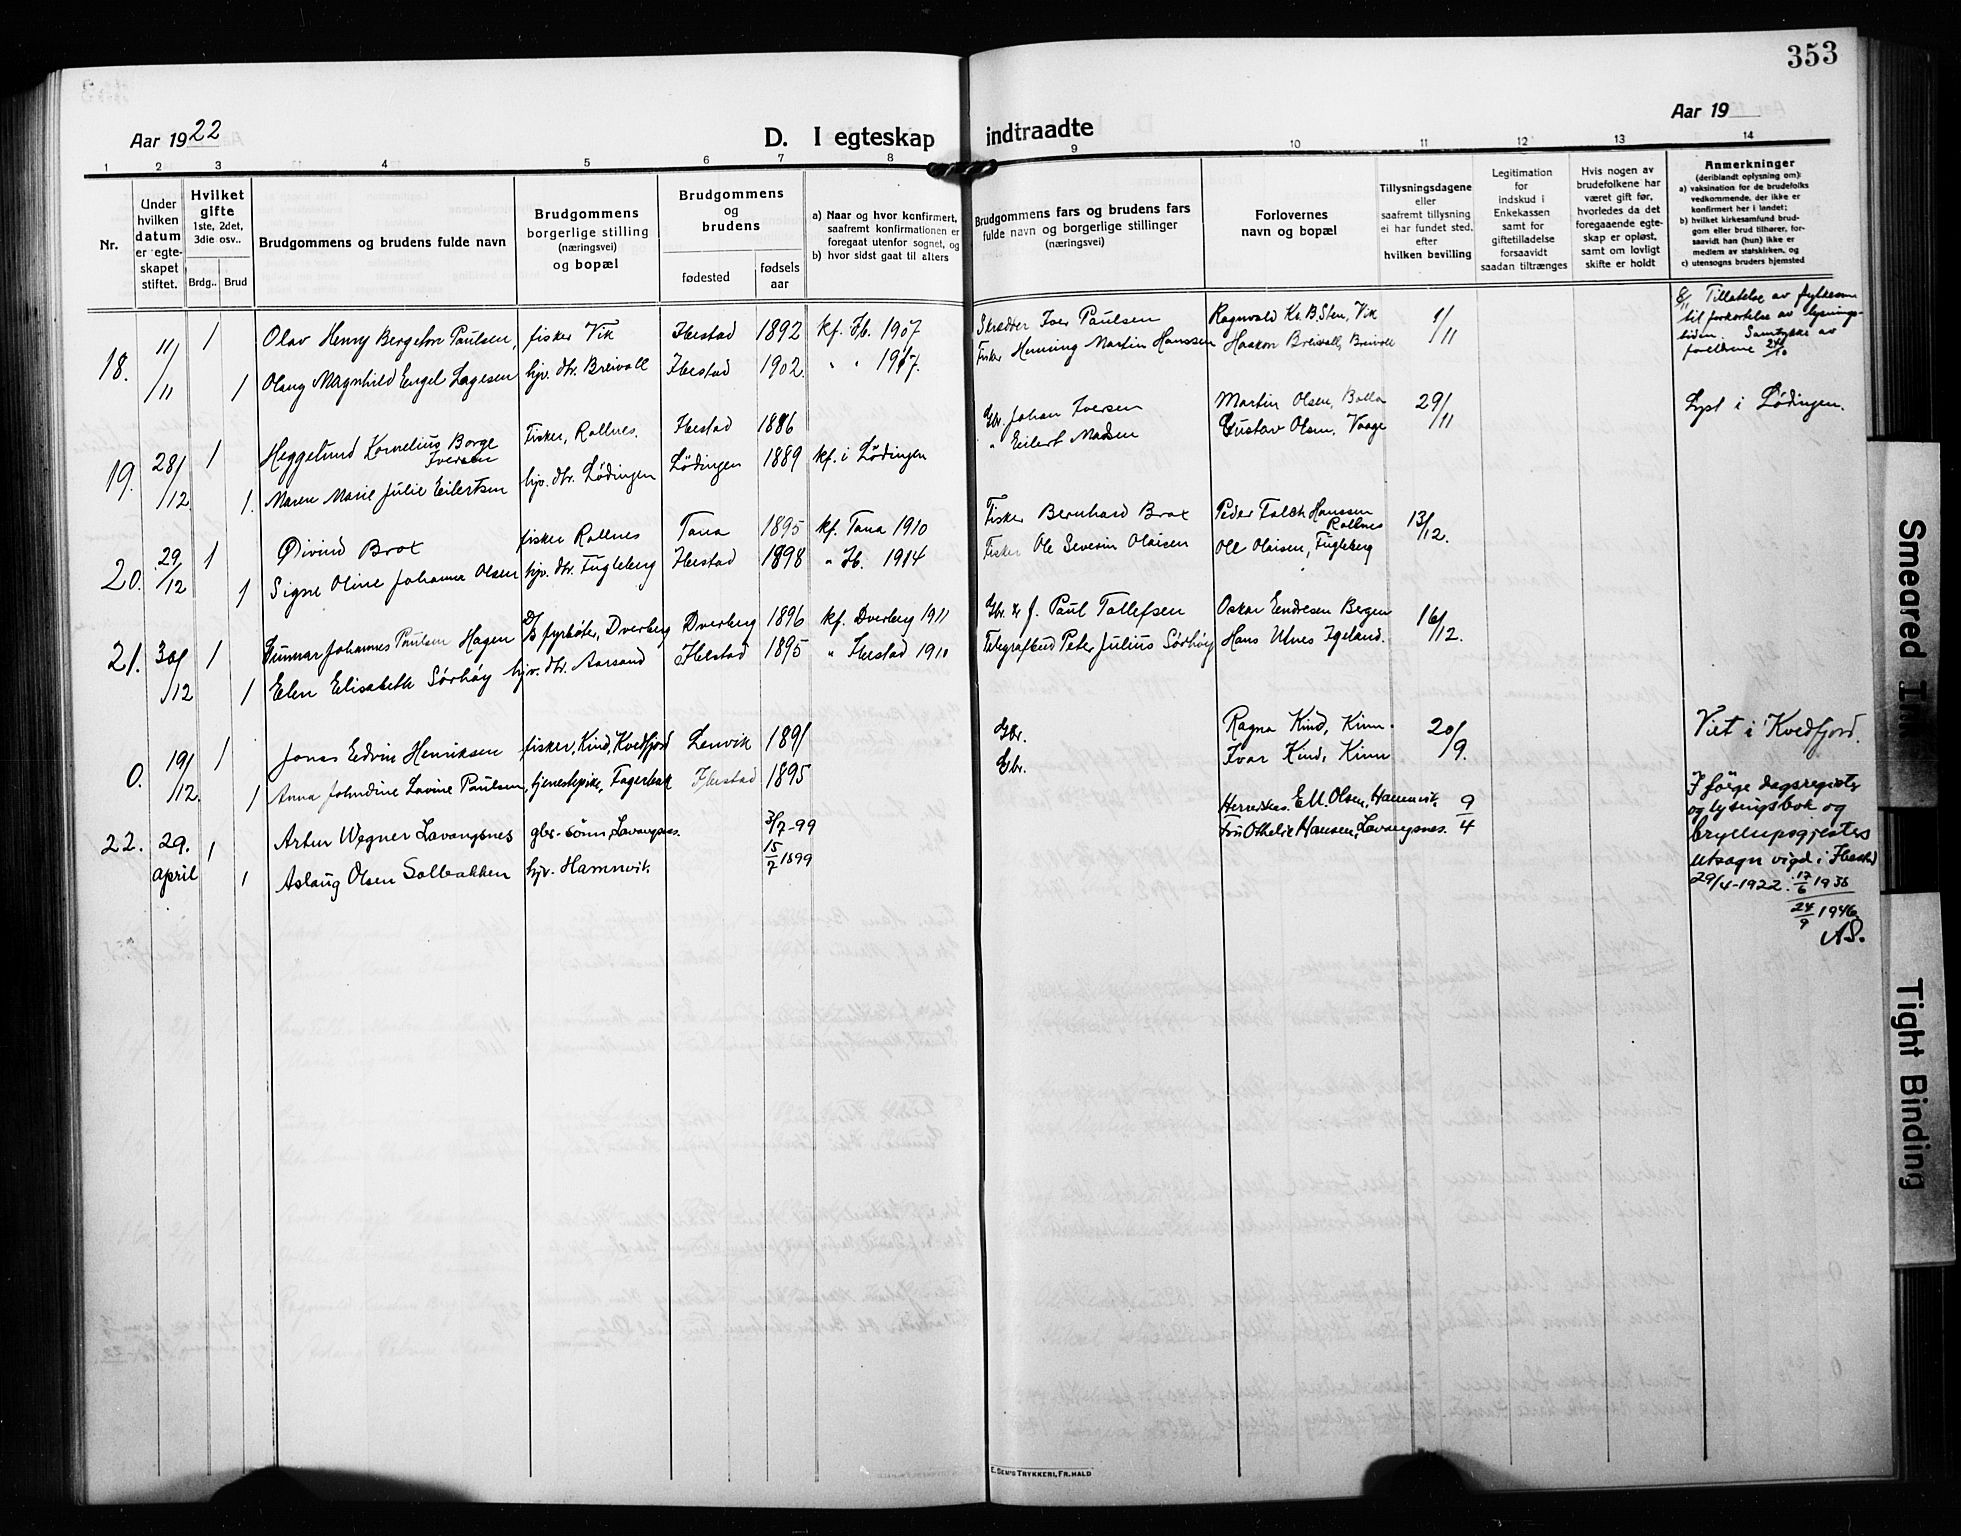 353
Aar 1922
D. I egteskap indtraadte
Aar 19
1 2 3 4 5 6 7 8 9 10 11 12 13 14
Nr.
Under hvilken datum er egteskapet stiftet.
Hvilket gifte 1ste, 2det, 3die osv..
Brdg.. Brud
Brudgommens og brudens fulde navn
Brudgommens borgerlige stilling (næringsvei) og bopæl
Brudgommens og brudens
fødested
fødselsaar
a) Naar og hvor konfirmert, saafremt konfirmationen er foregaat utenfor sognet, og
b) hvor sidst gaat til alters
Brudgommens fars og brudens fars fulde navn og borgerlige stillinger (næringsvei)
Forlovernes navn og bopæl
Tillysningsdagene eller saafremt tillysning ei har fundet sted, efter hvilken bevilling
Legitimation for indskud i Enkekassen samt for giftetilladelse forsaavidt saadan tiltrænges
Hvis nogen av brudefolkene har været gift før, hvorledes da det foregaaende egteskap er opløst, samt om lovligt skifte er holdt
Anmerkninger
(deriblandt oplysning om):
a) vaksination for de brudefolks vedkommende, der ikke er konfirmert her i landet;
b) hvilket kirkesamfund brudgom eller brud tilhører, forsaavidt han (hun) ikke er medlem av statskirken, og
c) utensogns bruders hjemsted
18. 11/11 1 Olav Henry Bergeton Paulsen, fisker Vik Ibestad 1892 kf. Ib. 1907 Skrædder Iver Paulsen Ragnvald Kr. B. Sten, Vik 1/11 8/11 Tillatelse av fylkesm. til forkortelse av lysningstiden. Samtykke av forældrene 24/10
1 Olaug Magnhild Engel Lagesen hjv. dtr. Breivoll Ibestad 1902 " " 1917. Fisker Henning Martin Hanssen Haakon Breivoll, Breivoll
19. 28/12 1 Heggelund Kornelius Borge Iversen Fisker, Rollnes. Ibestad 1886 Gbr. Johan Iversen Martin Olsen, Bolla 29/11 Lyst i Lødingen.
1. Maren Marie Julie Eilertsen hjv. dtr. Lødingen Lødingen 1889 kf. i Lødingen " Eilert Madsen Gustav Olsen, Vaage
20. 29/12 1 Øivind Brox fisker Rollnes Tana 1895 kf. Tana 1910 Fisker Bernhard Brox Peder Falch Hanssen Rollnes 13/12.
1 Signe Oline Johanna Olsen hjv. dtr. Fugleberg Ibestad 1898 " Ib. 1914 Fisker Ole Severin Olaisen Ole Olaisen, Fugleberg
21. 30/12 1 Gunnar Johannes Paulsen Hagen D/S fyrbøter, Dverberg Dverberg 1896 kf. Dverberg 1911 Gbr. & f. Paul Tollefsen Oskar Endresen Bergen 16/12.
1 Elen Elisabeth Sørhøy hjv. dtr. Aarsand Ibestad 1895 " Ibestad 1910 Telegrafbud Peter Julius Sørhøy Hans Utnes Igeland.
0. 19/12. 1 Jonas Edvin Henriksen fisker, Kind, Kvedfjord Lenvik 1891 Gbr. Ragna Kind, Kinn. 20/9. Viet i Kvedfjord.
1 Anna Johndine Lovine Paulsen, tjenestepike, Fagerbak Ibestad 1895 Gbr. Ivar Kind, Kinn
22. 29. april 1 Artur Wegner Lavangsnes gbr. sønn, Lavangsnes. 3/7-99 Herredskas. E.M. Olsen, Hamnvik. 9/4
1 Aslaug Olsen Solbakken hjv. Hamnvik. 15/7 1899 Fru Othelie Hansen, Lavangsnes.
Ifølge dagsregister
og lysingsbok og
bryllupsgjesters
utsagn vigd i Ibestad
29/4-1922. 17/6 1936
24/9 1946
AS.
E. SEM'S TRYKKERI, FR.HALD
Smeared Ink
Tight Binding